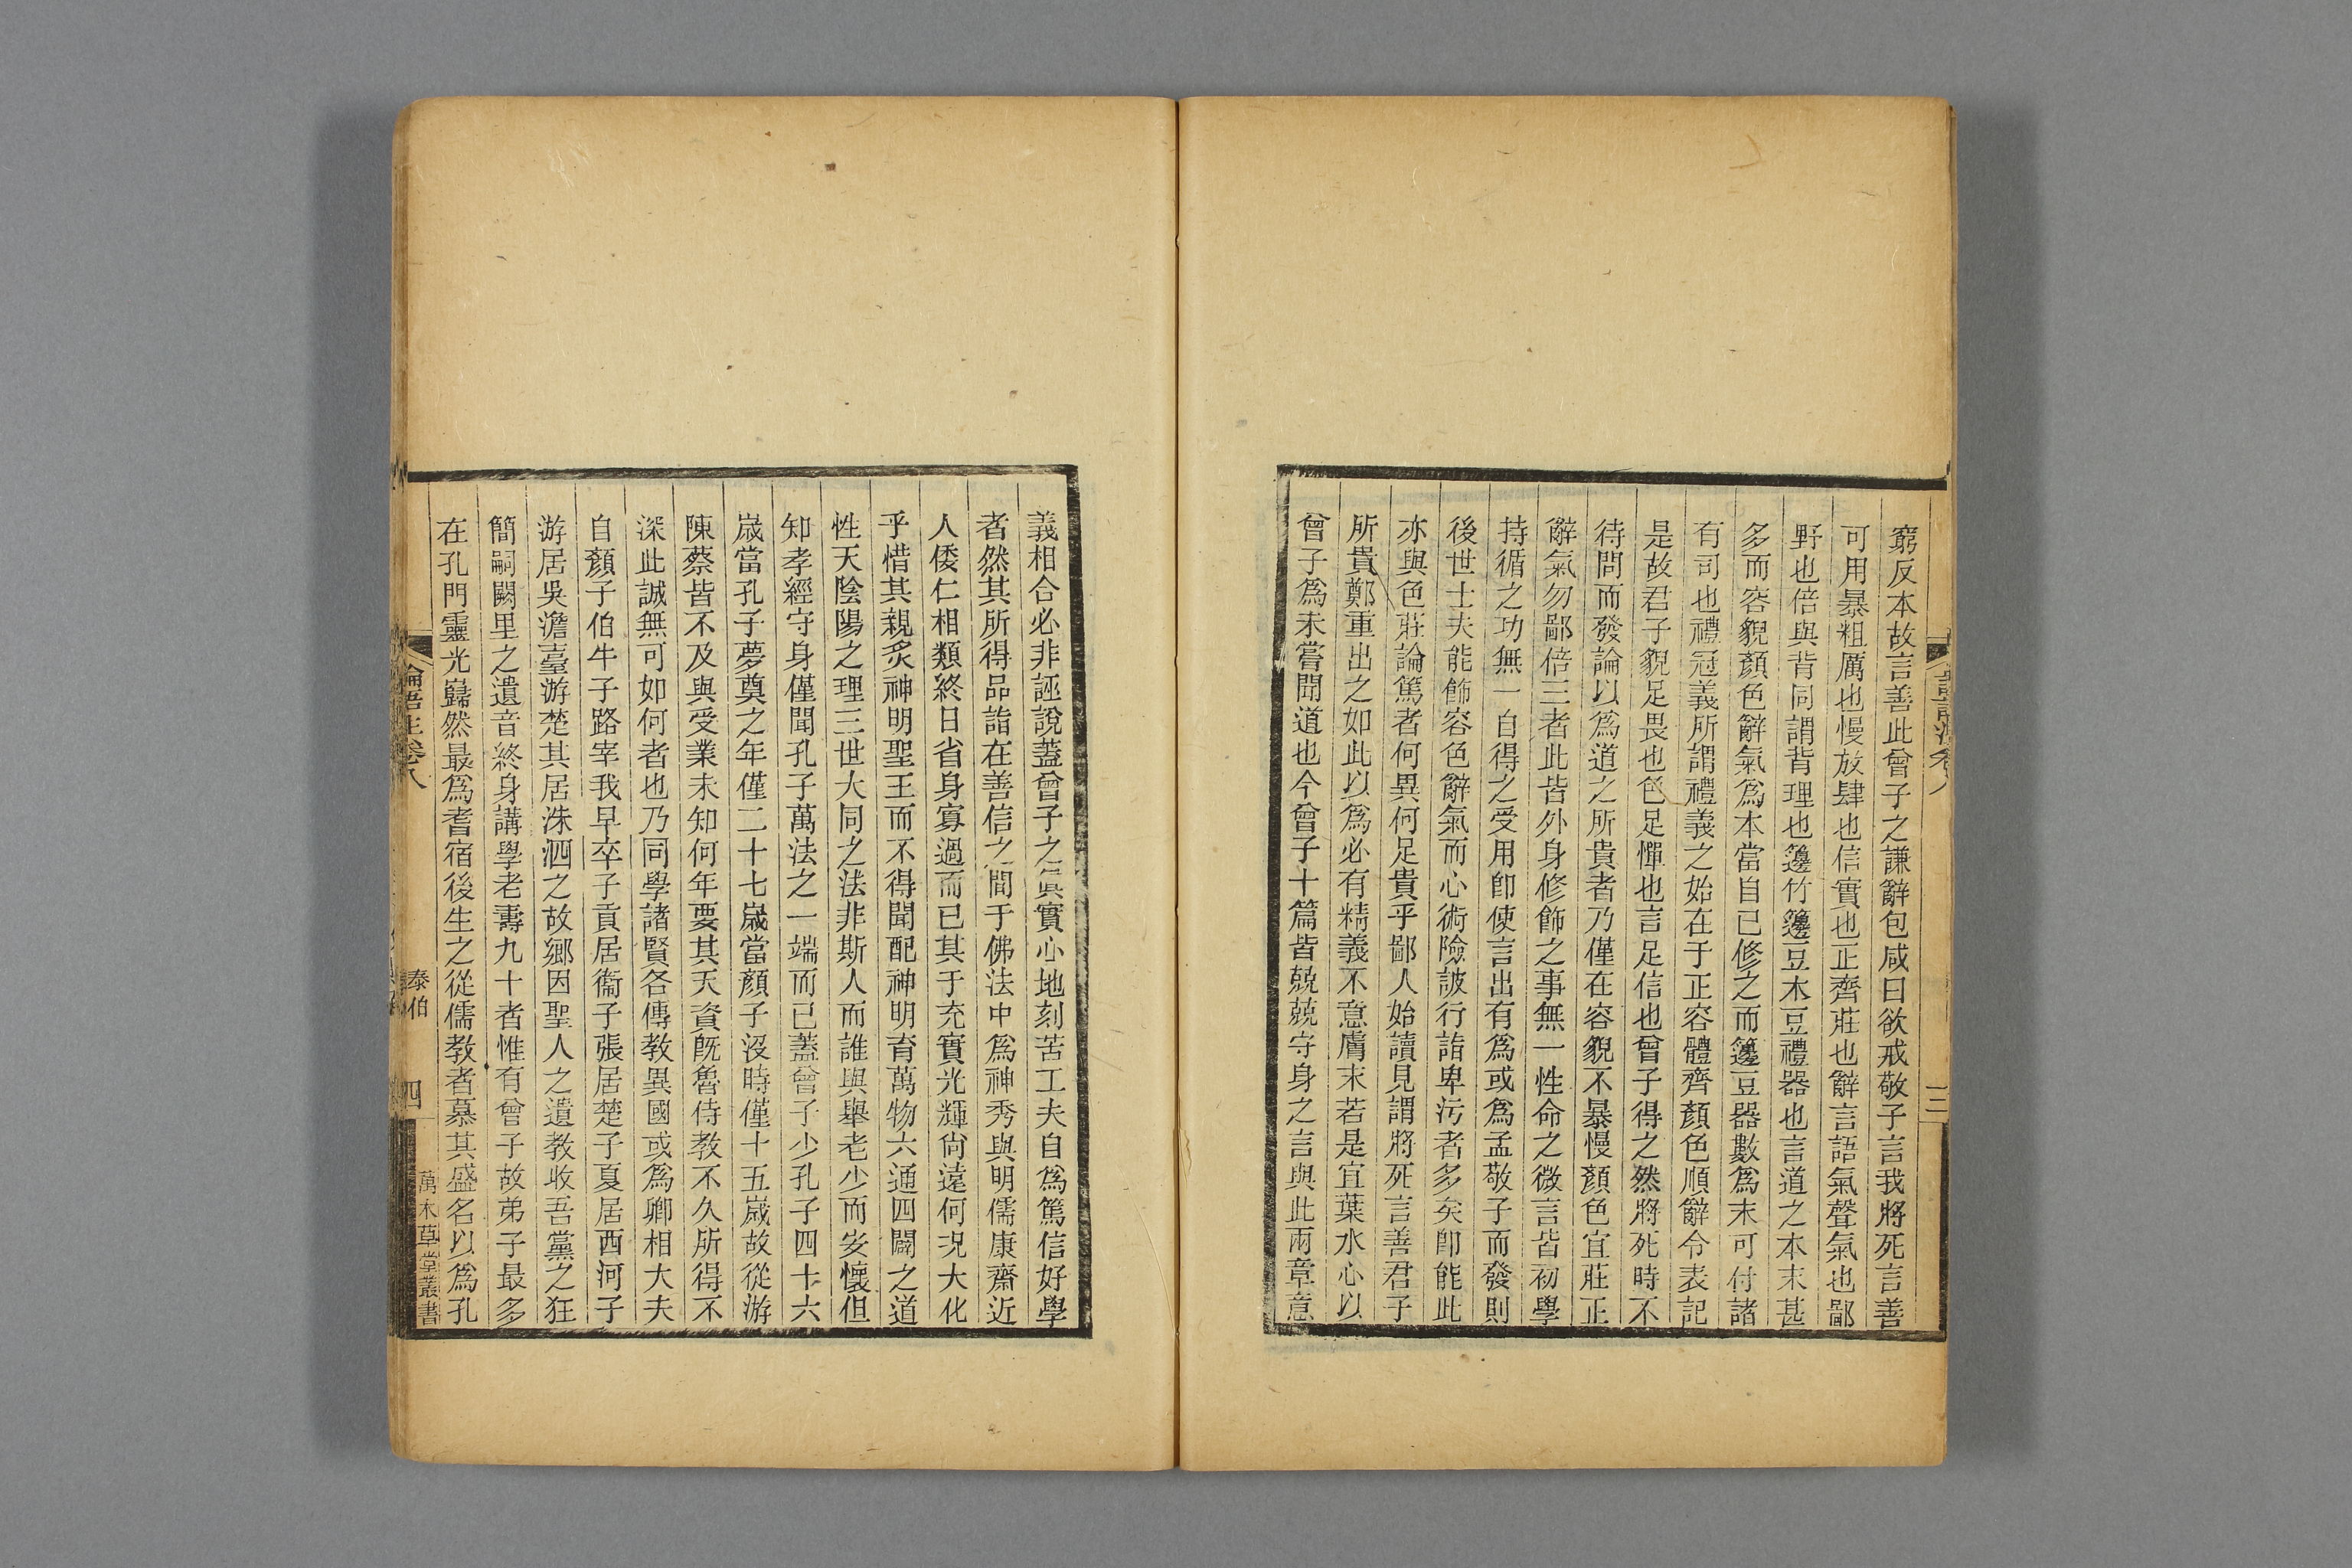 窮反本故言善此曾子之謙辭包咸曰欲戒敬子言我將死言善
可用暴粗厲也慢放肆也信實也正齊莊也辭言語氣聲氣也鄙
野也倍與背同謂背理也籩竹籩豆木豆禮器也言道之本末甚
多而容貌顏色辭氣為本當自己修之而籩豆器數為末可付諸
有司也禮冠義所謂禮義之始在于正容體齊顏色順辭令表記
是故君子貌足畏也色足憚也言足信也曾子得之然將死時不
待問而發論以為道之所貴者乃僅在容貌不暴慢顏色宜莊正
辭氣勿鄙倍三者此皆外身修飾之事無一性命之微言皆初學
持循之功無一自得之受用卽使言出有為或為孟敬子而發則
後世士夫能飾容色辭氣而心術險詖行詣卑污者多矣卽能此
亦與色莊論篤者何異何足貴乎鄙人始讀見謂將死言善君子
所貴鄭重出之如此以為必有精義不意膚末若是宜葉水心以
曾子為未嘗聞道也今曾子十篇皆兢兢守身之言與此兩章意
三
義相合必非誣說蓋曾子之眞實心地刻苦工夫自為篤信好學
者然其所得品詣在善信之間于佛法中為神秀與明儒康齋近
人倭仁相類終日省身寡過而已其于充實光輝尚遠何況大化
乎惜其親炙神明聖王而不得聞配神明育萬物六通四闢之道
性天陰陽之理三世大同之法非斯人而誰與舉老少而安懷但
知孝經守身僅聞孔子萬法之一端而已蓋曾子少孔子四十六
嵗當孔子夢奠之年僅二十七嵗當顏子沒時僅十五嵗故從游
陳蔡皆不及與受業未知何年要其天資旣魯侍教不久所得不
深此誠無可如何者也乃同學諸賢各傳教異國或為卿相大夫
自顏子伯牛子路宰我早卒子貢居衞子張居楚子夏居西河子
游居吳澹臺游楚其居洙泗之故鄉因聖人之遺教收吾黨之狂
簡嗣闕里之遺音終身講學老壽九十者惟有曾子故弟子最多
在孔門靈光巋然最為耆宿後生之從儒教者慕其盛名以為孔
論語注卷八
泰伯
四
萬木草堂叢書